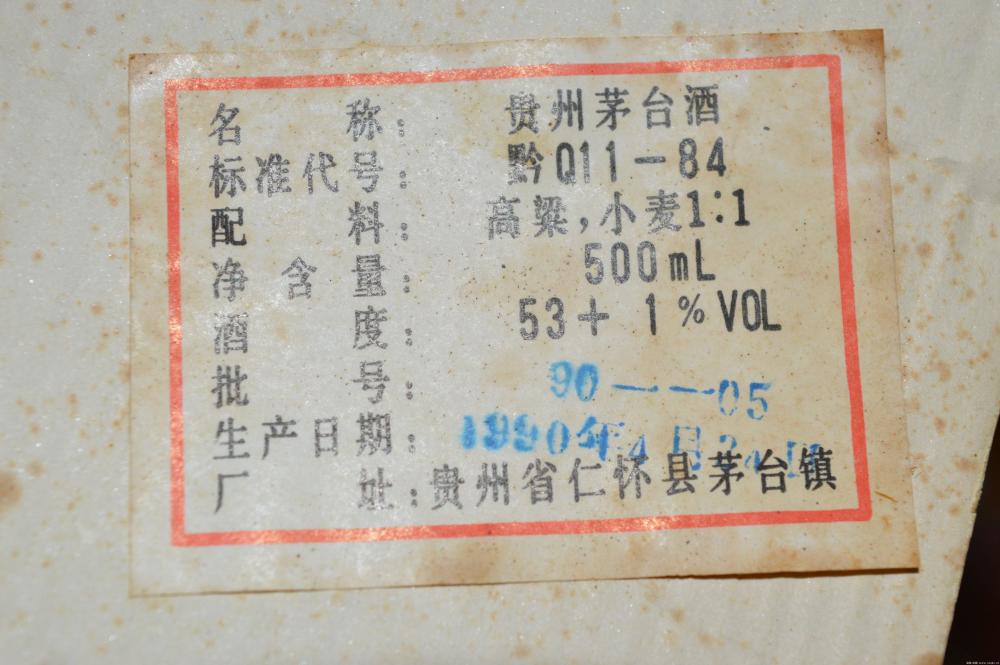 名称：贵州茅台酒
标准代号：黔Q11-84
配料：高粱,小麦1:1
净含量：500mL
酒度：53+1%VOL
批号：90——05
生产日期：1990年4月24日
厂址：贵州省仁怀县茅台镇